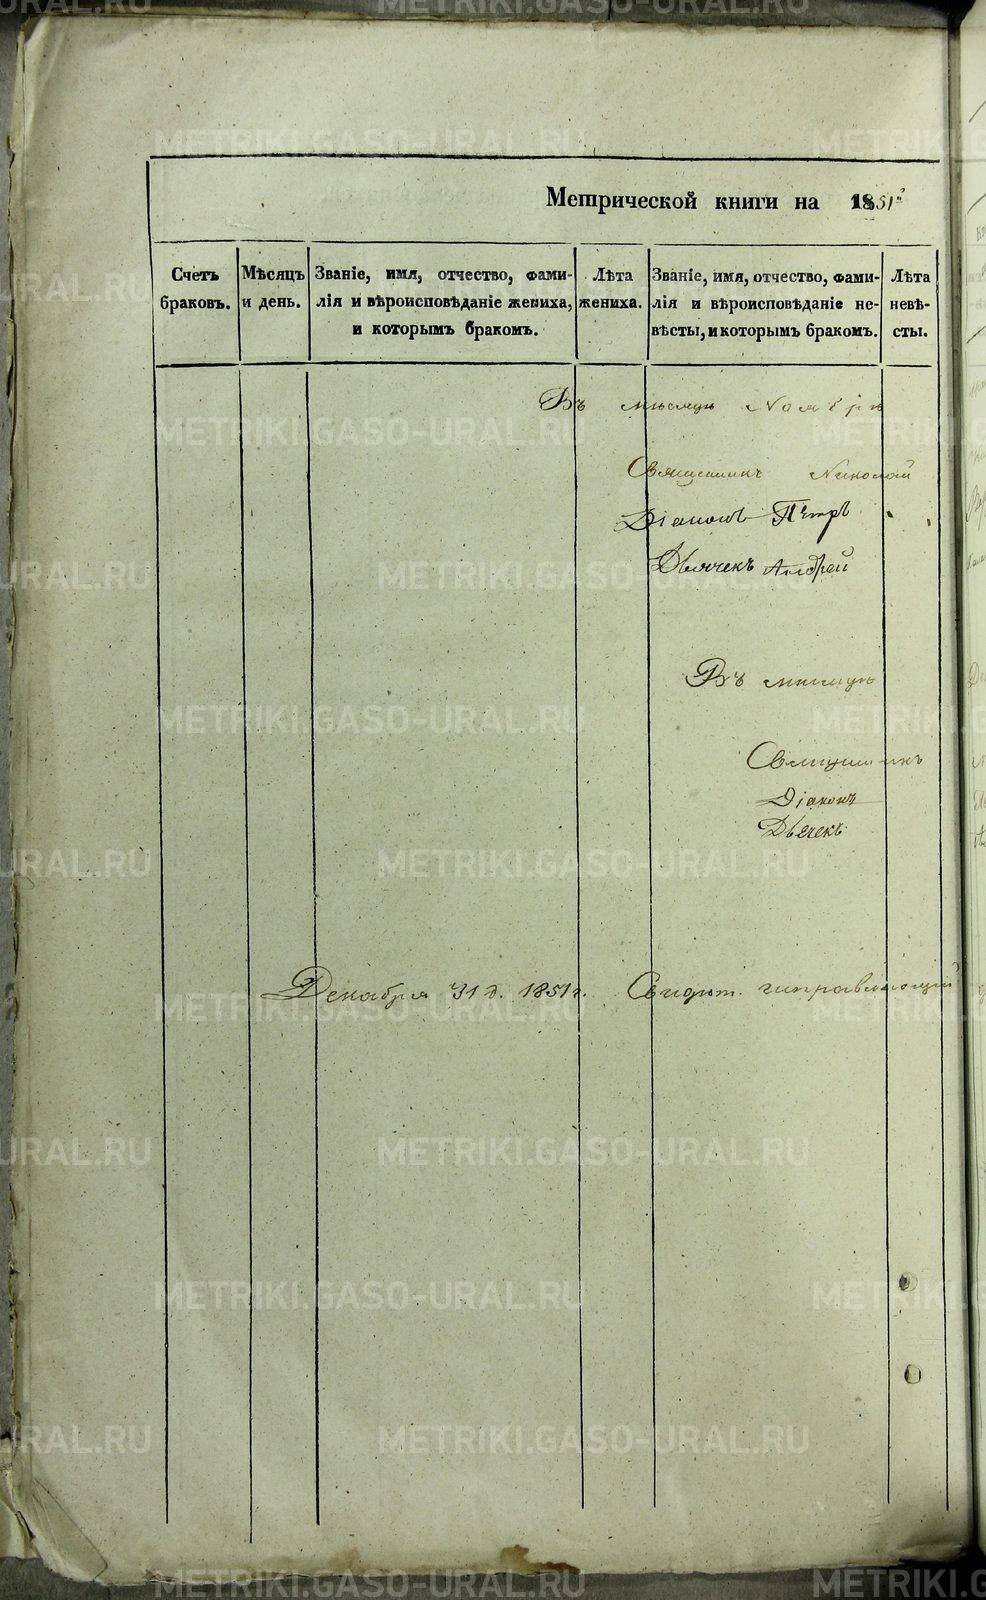 METRIKI.GASO-URAL.RU
Метрической книги на 1851й
Счетъ браковъ.
Мѣсяцъ и день.
Званіе, имя, отчество, фами-
лія и вѣроисповѣданіе жениха,
и которымъ бракомъ.
Лѣта
жениха.
Званіе, имя, отчество, фами-
лія и вѣроисповѣданіе не-
вѣсты, и которымъ бракомъ.
Лѣта
невѣ-
сты.
Въ мѣсяцѣ Ноябрѣ
Священникъ Николай
Діаконъ Петръ
Дьячекъ Андрей
Въ мѣсяцѣ
Священникъ
Діаконъ
Дьячекъ
Декабря 31 д. 1851 г.